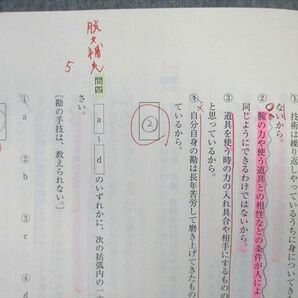 ① 技術は繰り返しやっているうちに身について
ないから。
② 腕の力や使う道具との相性などの条件が人によ
同じようにできるわけではないから。
③ 道具を使う時の力の入れ具合や相手にするもの
と思っているから。
④ 自分自身の勘は長年苦労して磨き上げてきたもの
ているから。
②
脱文補充
5
問四 a ~ d のいずれかに、次の括弧内の一
さい。
〔勘の手技は、教えられない。〕
① a ② b ③ c ④ d